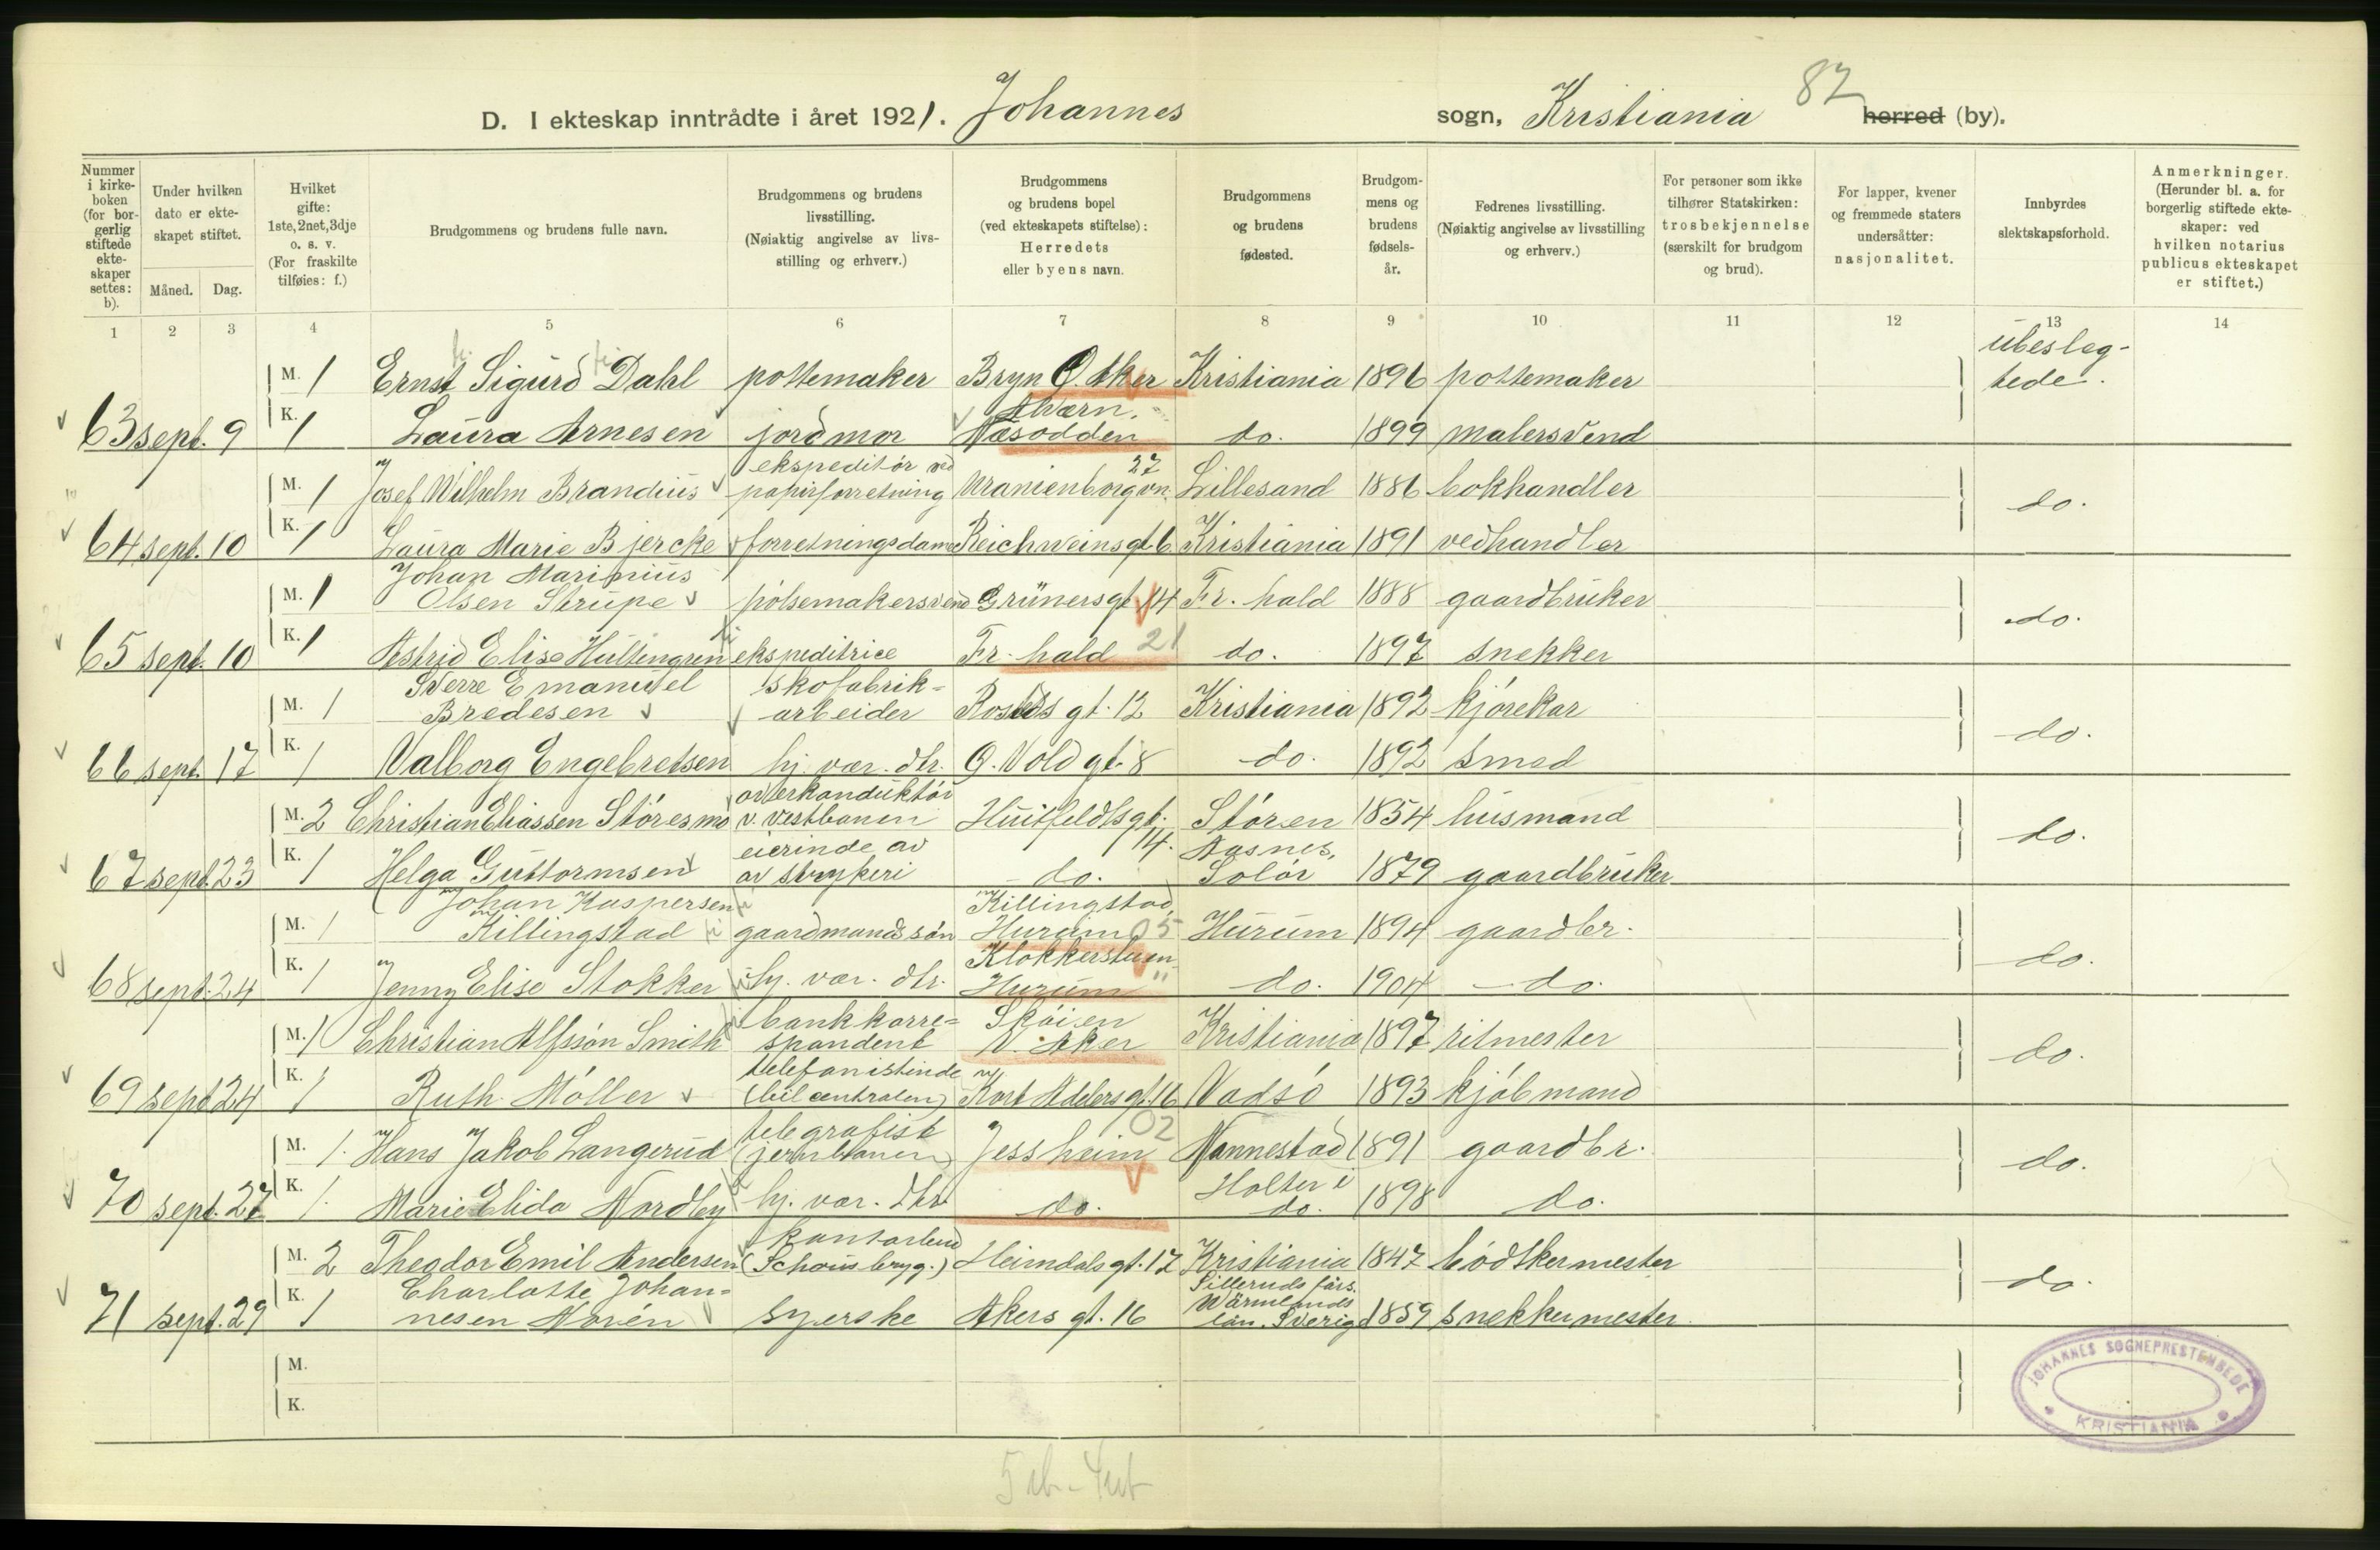 87
D. I ekteskap inntrådte i året 1921. Johannes sogn, Kristiania herred (by).
Nummer i kirkeboken (for borgerlig stiftede ekteskaper settes: b).
Under hvilken dato er ekteskapet stiftet.
Måned. Dag.
Hvilket gifte: 1ste, 2net, 3dje o. s. v. (For fraskilte tilføies: f.)
Brudgommens og brudens fulle navn.
Brudgommens og brudens livsstilling. (Nøiaktig angivelse av livsstilling og erhverv.)
Brudgommens og brudens bopel (ved ekteskapets stiftelse): Herredets eller byens navn.
Brudgommens og brudens fødested.
Brudgommens og brudens fødselsår.
Fedrenes livsstilling. (Nøiaktig angivelse av livsstilling og erhverv.)
For personer som ikke tilhører Statskirken: trosbekjennelse (særskilt for brudgom og brud).
For lapper, kvener og fremmede staters undersåtter: nasjonalitet.
Innbyrdes slektskapsforhold.
Anmerkninger. (Herunder bl. a. for borgerlig stiftede ekteskaper: ved hvilken notarius publicus ekteskapet er stiftet.)
1 2 3 4 5 6 7 8 9 10 11 12 13 14
M. 1 Ernst Sigurd Dahl pottemaker Bryn Ø. Aker Kristiania 1896 pottemaker ubeslegtede.
63 sept. 9 K. 1 Laura Arnesen jordmor Alværn. Næsodden do. 1899 malersvend
M. 1 Josef Wilhelm Brandius ekspeditör ved papirforretning Uranienborgvn. 27 Lillesand 1886 bokhandler do.
64 sept. 10 K. 1 Laura Marie Bjercke forretningsdame Reichweinsgt. 6 Kristiania 1891 vedhandler
M. 1 Johan Marinius Olsen Strupe pölsemakersvend Grünersgt. 14 Fr. hald 1888 gaardbruker do.
65 sept. 10 K. 1 Astrid Elise Hultengren ekspeditrice Fr. hald 21 do. 1897 snekker
M. 1 Sverre Emanuel Bredesen skofabrik=arbeider Rosteds gt. 12 Kristiania 1892 kjörekar do.
66 sept. 17 K. 1 Valborg Engebretsen hj. vær. dtr. Ö. Vold gt. 8 do. 1892 smed
M. 2 Christian Eliassen Störesmo overkonduktör v. vestbanen Huitfeldtsgt. 14. Stören 1854 husmand do.
67 sept. 23 K. 1 Helga Guttormsen eierinde av av strykeri do. Aasnes, Solör 1879 gaardbruker
M. 1 Johan Kaspersen Killingstad gaardmandssön Killingstad, Hurum 05 Hurum 1894 gaardbr. do.
68 sept. 24 K. 1 Jenny Elise Stokker hj. vær. dtr. Klokkerstuen Hurum " do. 1904 do.
M. 1 Christian Alfssön Smith bankkorre=spondent Sköien V. Aker Kristiania 1897 ritmester do.
69 sept. 24 K. 1 Ruth Möller telefonistinde (bilcentralen) Kort Adelersgt. 16 Vadsö 1893 kjöbmand
M. 1. Hans Jakob Langerud telegrafist (jernbanen) Jessheim 02 Nannestad 1891 gaardbr. do.
70 sept. 27 K. 1. Marie Elida Nordby hj. vær. dtr. do. Holter i do. 1898 do.
M. 2 Theodor Emil Andersen kontorbud (Schous bryg.) Heimdalsgt. 12 Kristiania 1847 bödkermester do.
71 sept. 29 K. 1 Charlotte Johan=nesen Norén syerske Akers gt. 16 Sillerudsförs. Wärmlands län. Sverige 1859 snekkermester
M.
K.
JOHANNES SOGNEPRESTEMBEDE
KRISTIANIA